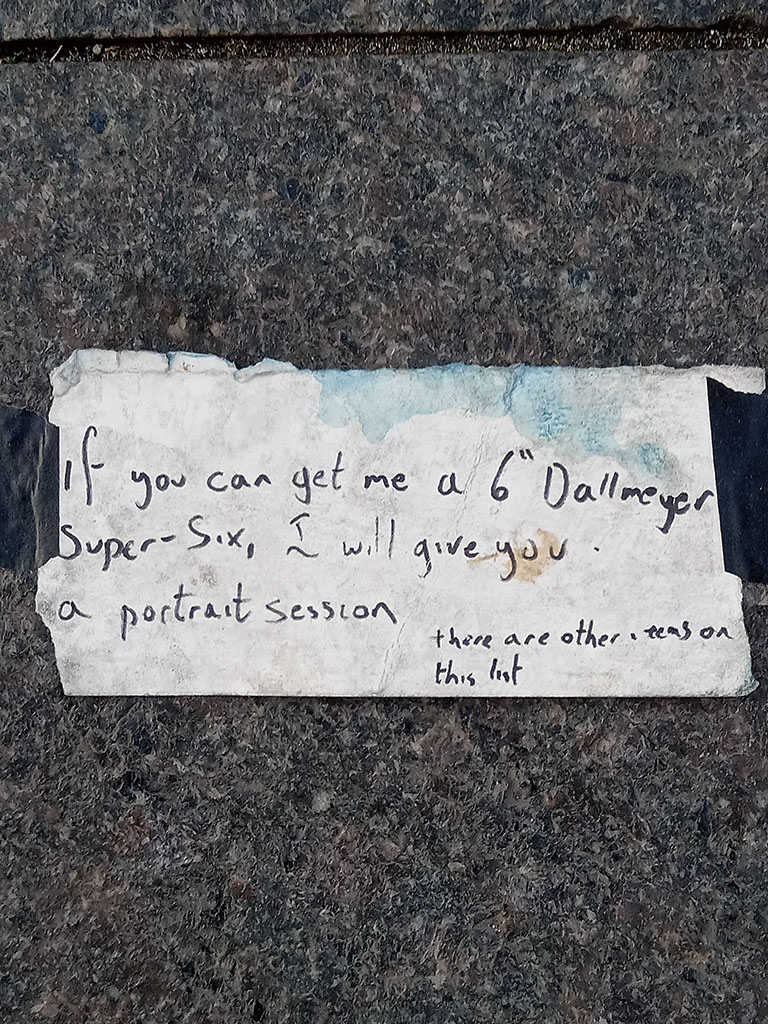 If you can get me a 6" Dallmeyer
Super-Six, I will give you.
a portrait session
there are other items on
this list